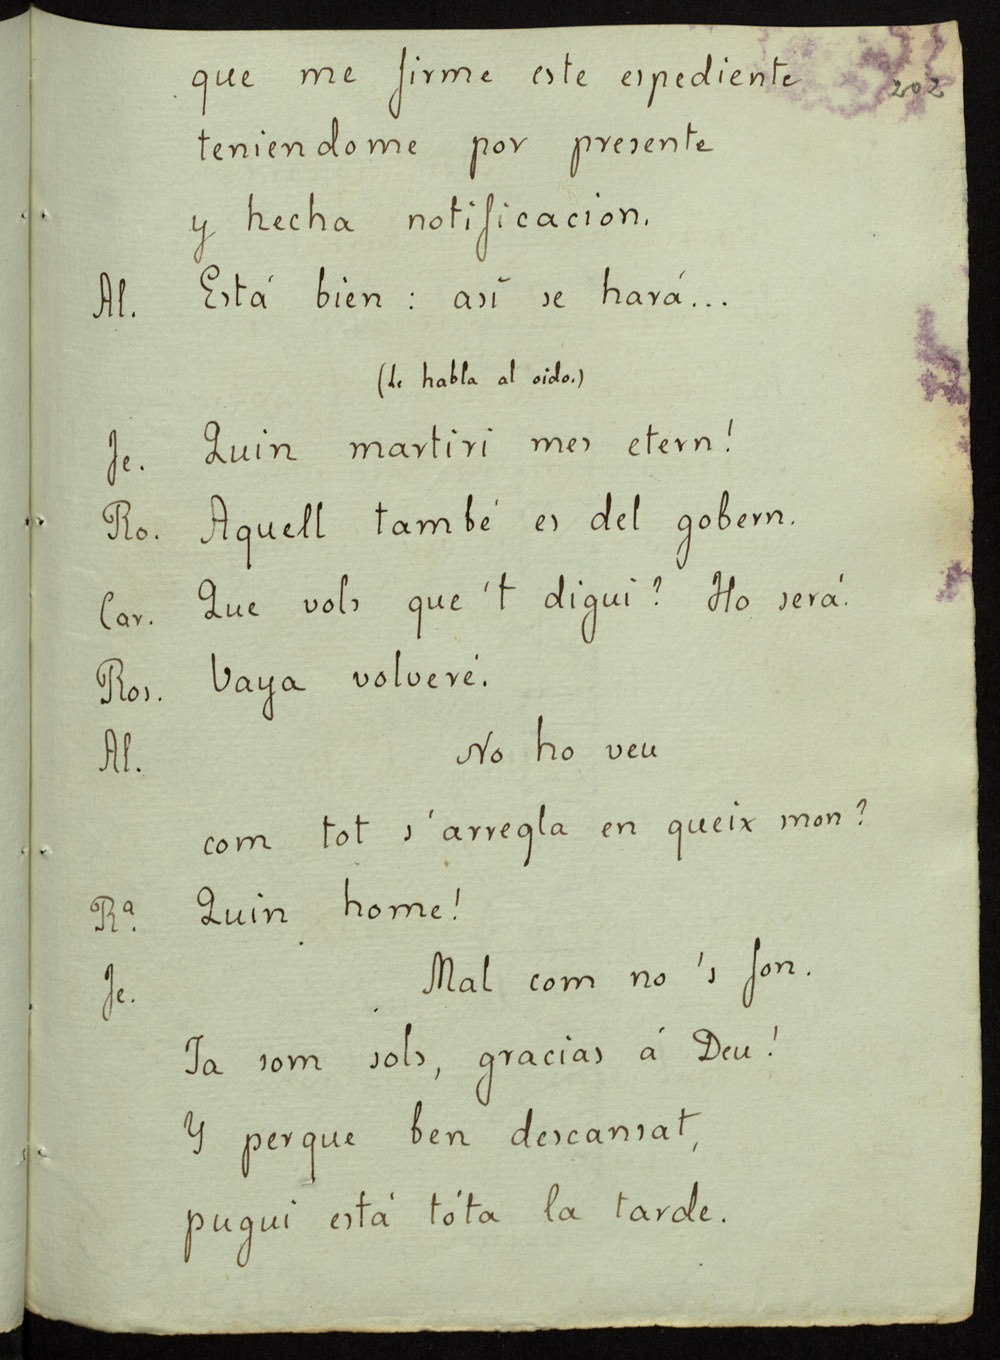 202
que me firme este espediente
teniendome por presente
y hecha notificacion.
Al. Está bien: así se hará...
(Le habla al oido.)
Je. Quin martiri mes etern!
Ro. Aquell també es del gobern.
Car. Que vols que 't digui? Ho será.
Ros. Vaya volveré.
Al. No ho veu
com tot s'arregla en queix mon?
Rª. Quin home!
Je. Mal com no 's fon.
Ja som sols, gracias á Deu!
Y perque ben descansat,
pugui está tóta la tarde.